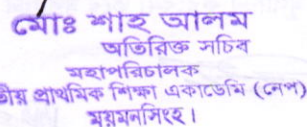 মোঃ শাহ আলম
অতিরিক্ত সচিব
মহাপরিচালক
প্রাথমিক শিক্ষা একাডেমি (নেপ)
ময়মনসিংহ।